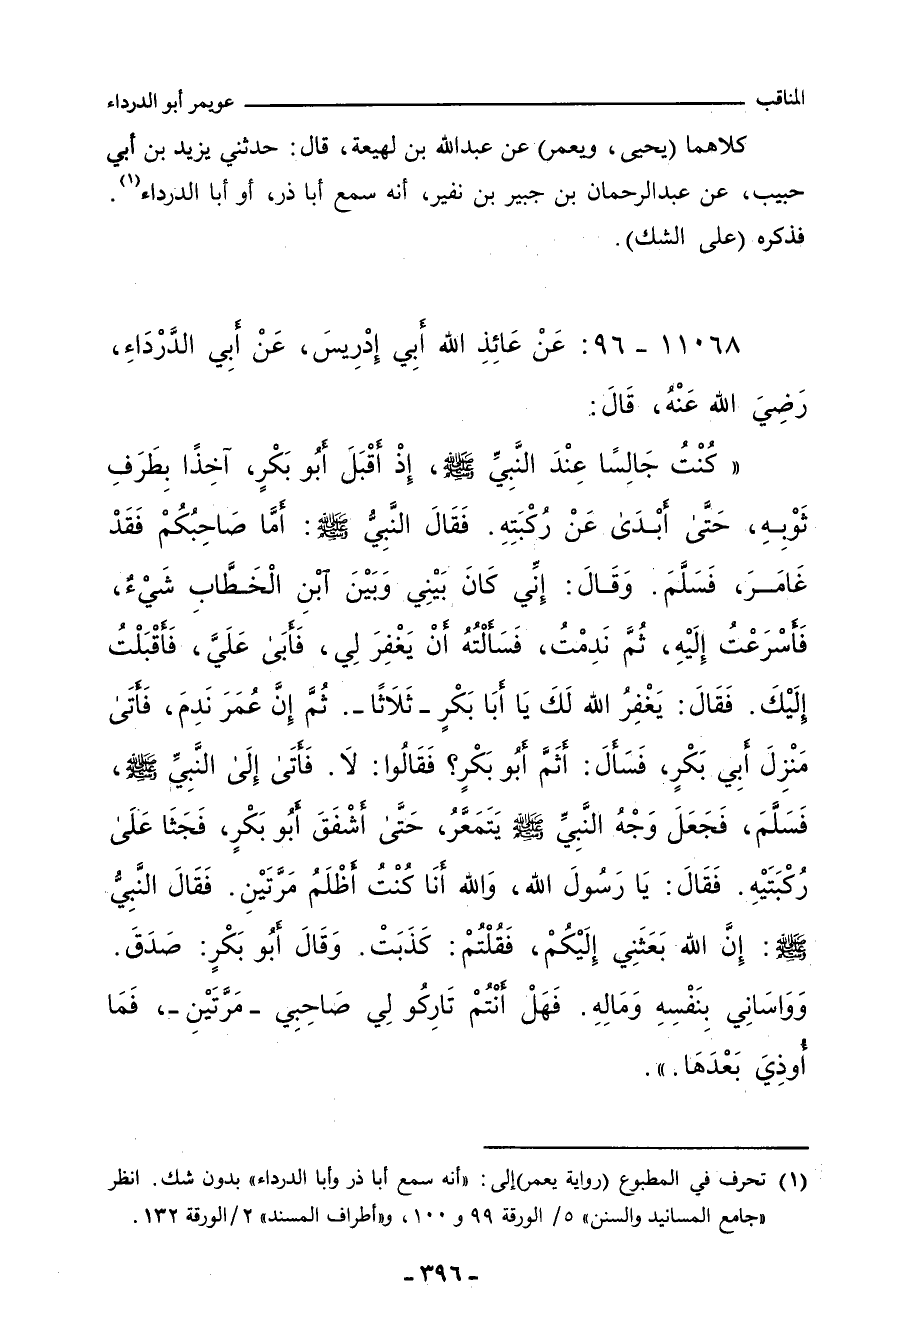 المناقب ــــــــــــــــ عويمر أبو الدرداء
كلاهما (يحيى، ويعمر) عن عبدالله بن لهيعة، قال: حدثني يزيد بن أبي
حبيب، عن عبدالرحمان بن جبير بن نفير، أنه سمع أبا ذر، أو أبا الدرداء(١).
فذكره (على الشك).
١١٠٦٨ - ٩٦: عَنْ عَائِذِ الله أَبِي إِدْرِيسَ، عَنْ أَبِي الدَّرْدَاءِ،
رَضِيَ الله عَنْهُ، قَالَ:
« كُنْتُ جَالِسًا عِنْدَ النَّبِيِّ ﷺ، إِذْ أَقْبَلَ أَبُو بَكْرٍ، آخِذًا بِطَرَفِ
ثَوْبِهِ، حَتَّىٰ أَبْدَىٰ عَنْ رُكْبَتِهِ. فَقَالَ النَّبِيُّ ﷺ: أَمَّا صَاحِبُكُمْ فَقَدْ
غَامَرَ، فَسَلَّمَ. وَقَالَ: إِنِّي كَانَ بَيْنِي وَبَيْنَ آبْنِ الْخَطَّابِ شَيْءٌ،
فَأَسْرَعْتُ إِلَيْهِ، ثُمَّ نَدِمْتُ، فَسَأَلْتُهُ أَنْ يَغْفِرَ لِي، فَأَبَىٰ عَلَيَّ، فَأَقْبَلْتُ
إِلَيْكَ. فَقَالَ: يَغْفِرُ الله لَكَ يَا أَبَا بَكْرٍ - ثَلَاثًا -. ثُمَّ إِنَّ عُمَرَ نَدِمَ، فَأَتَىٰ
مَنْزِلَ أَبِي بَكْرٍ، فَسَأَلَ: أَثَمَّ أَبُو بَكْرٍ؟ فَقَالُوا: لَا. فَأَتَىٰ إِلَىٰ النَّبِيِّ ﷺ،
فَسَلَّمَ، فَجَعَلَ وَجْهُ النَّبِيِّ ﷺ يَتَمَعَّرُ، حَتَّىٰ أَشْفَقَ أَبُو بَكْرٍ، فَجَثَا عَلَىٰ
رُكْبَتَيْهِ. فَقَالَ: يَا رَسُولَ الله، وَالله أَنَا كُنْتُ أَظْلَمُ مَرَّتَيْنِ. فَقَالَ النَّبِيُّ
ﷺ: إِنَّ الله بَعَثَنِي إِلَيْكُمْ، فَقُلْتُمْ: كَذَبَتْ. وَقَالَ أَبُو بَكْرٍ: صَدَقَ.
وَوَاسَانِي بِنَفْسِهِ وَمَالِهِ. فَهَلْ أَنْتُمْ تَارِكُو لِي صَاحِبِي - مَرَّتَيْنِ -، فَمَا
أُوذِيَ بَعْدَهَا.».
(١) تحرف في المطبوع (رواية يعمر)إلى: «أنه سمع أبا ذر وأبا الدرداء» بدون شك. انظر
«جامع المسانيد والسنن» ٥/ الورقة ٩٩ و ١٠٠، و«أطراف المسند» ٢/الورقة ١٣٢.
- ٣٩٦ -